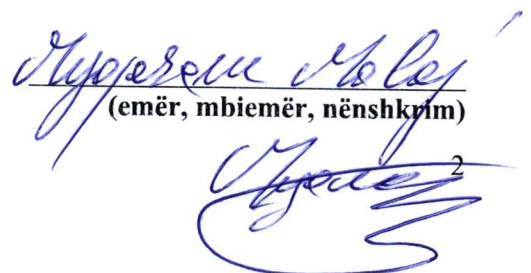 Myqerem Malaj
(emër, mbiemër, nënshkrim)
2